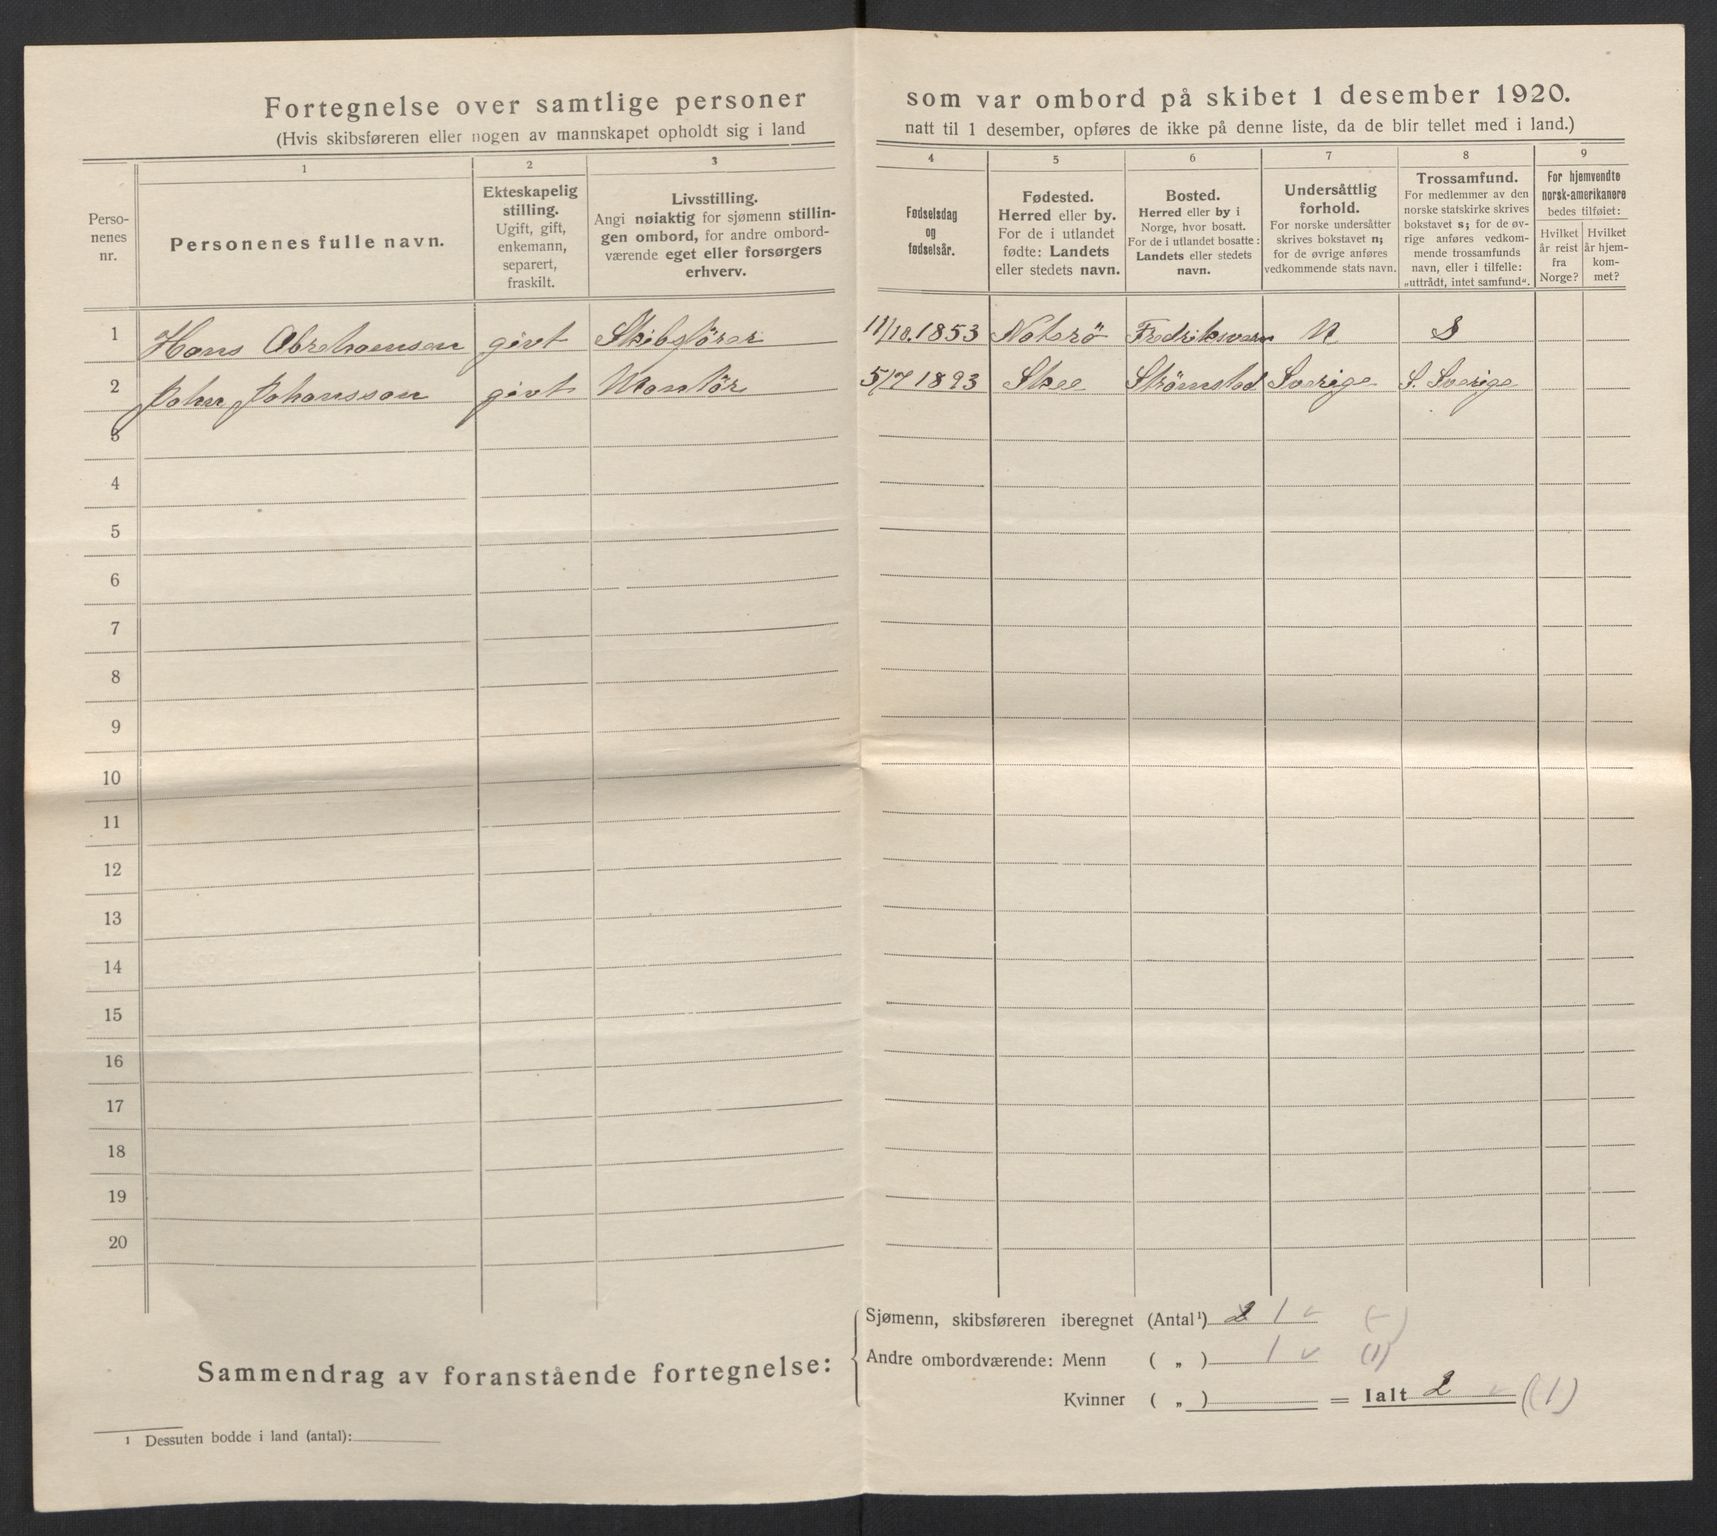 Fortegnelse over samtlige personer som var ombord på skibet 1 desember 1920.
(Hvis skibsføreren eller nogen av mannskapet opholdt sig i land natt til 1 desember, opføres de ikke på denne liste, da de blir tellet med i land.)
Perso-
nenes
nr.
1
Personenes fulle navn.
2
Ekteskapelig
stilling.
Ugift, gift,
enkemann,
separert,
fraskilt.
3
Livsstilling.
Angi nøiaktig for sjømenn stillin-
gen ombord, for andre ombord-
værende eget eller forsørgers
erhverv.
4
Fødselsdag
og
fødselsår.
5
Fødested.
Herred eller by.
For de i utlandet
fødte: Landets
eller stedets navn.
6
Bosted.
Herred eller by i
Norge, hvor bosatt.
For de i utlandet bosatte:
Landets eller stedets
navn.
7
Undersåttlig
forhold.
For norske undersåtter
skrives bokstavet n;
for de øvrige anføres
vedkommende stats navn.
8
Trossamfund.
For medlemmer av den
norske statskirke skrives
bokstavet s; for de øv-
rige anføres vedkom-
mende trossamfunds
navn, eller i tilfelle:
„uttrådt, intet samfund“.
9
For hjemvendte
norsk-amerikanere
bedes tilføiet:
Hvilket
år reist
fra
Norge?
Hvilket
år hjem-
kom-
met?
1 Hans Abrahamsen givt Skibsförer 11/10.1853 Noterö Fredriksvern N S
2 John Johansson givt Montör 5/7 1893 Skee Strömstad Sverige S. Sverige
3
4
5
6
7
8
9
10
11
12
13
14
15
16
17
18
19
20
Sammendrag av foranstående fortegnelse:
Sjømenn, skibsføreren iberegnet (Antal¹) 2 1 (-)
Andre ombordværende: Menn ( „ ) 1 (1)
Kvinner ( „ ) = Ialt 2 (1)
¹ Dessuten bodde i land (antal):